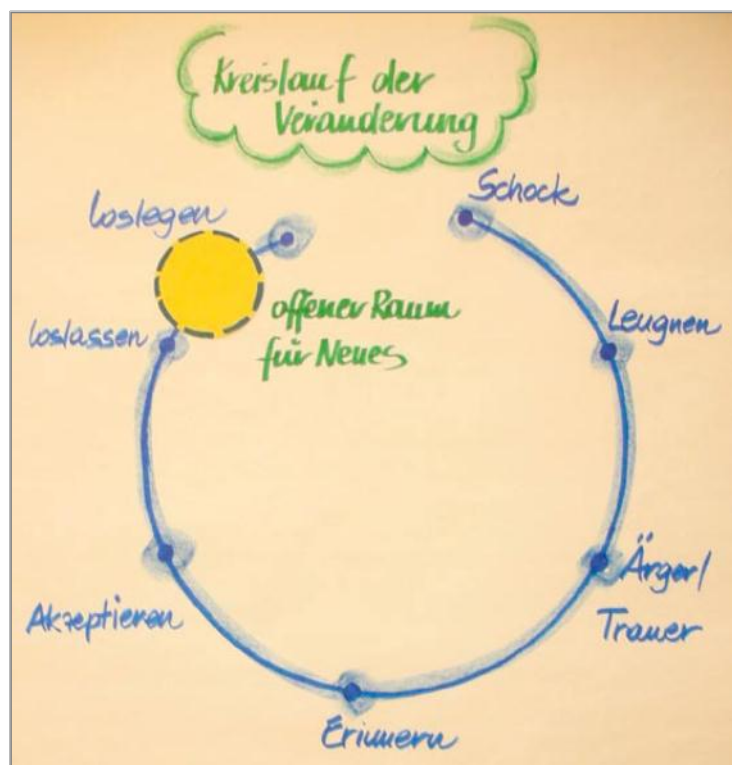 Kreislauf der
Veränderung
Schock
Leugnen
Ärger/
Trauer
Erinnern
Akzeptieren
loslassen
loslegen
offener Raum
für Neues